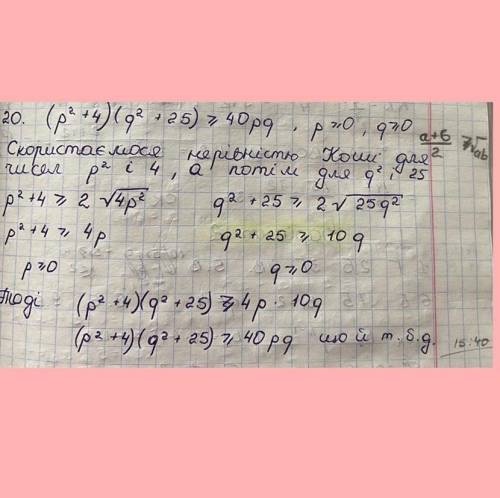 20. (p² + 4)(q² + 25) ≥ 40pq, p ≥ 0, q ≥ 0
(a+b)/2 ≥ √ab
Скористаємося нерівністю Коші для
чисел p² і 4, а потім для q² і 25
p² + 4 ≥ 2√4p² q² + 25 ≥ 2√25q²
p² + 4 ≥ 4p q² + 25 ≥ 10q
p ≥ 0 q ≥ 0
Тоді (p² + 4)(q² + 25) ≥ 4p · 10q
(p² + 4)(q² + 25) ≥ 40pq що й т. б. д.
15:40